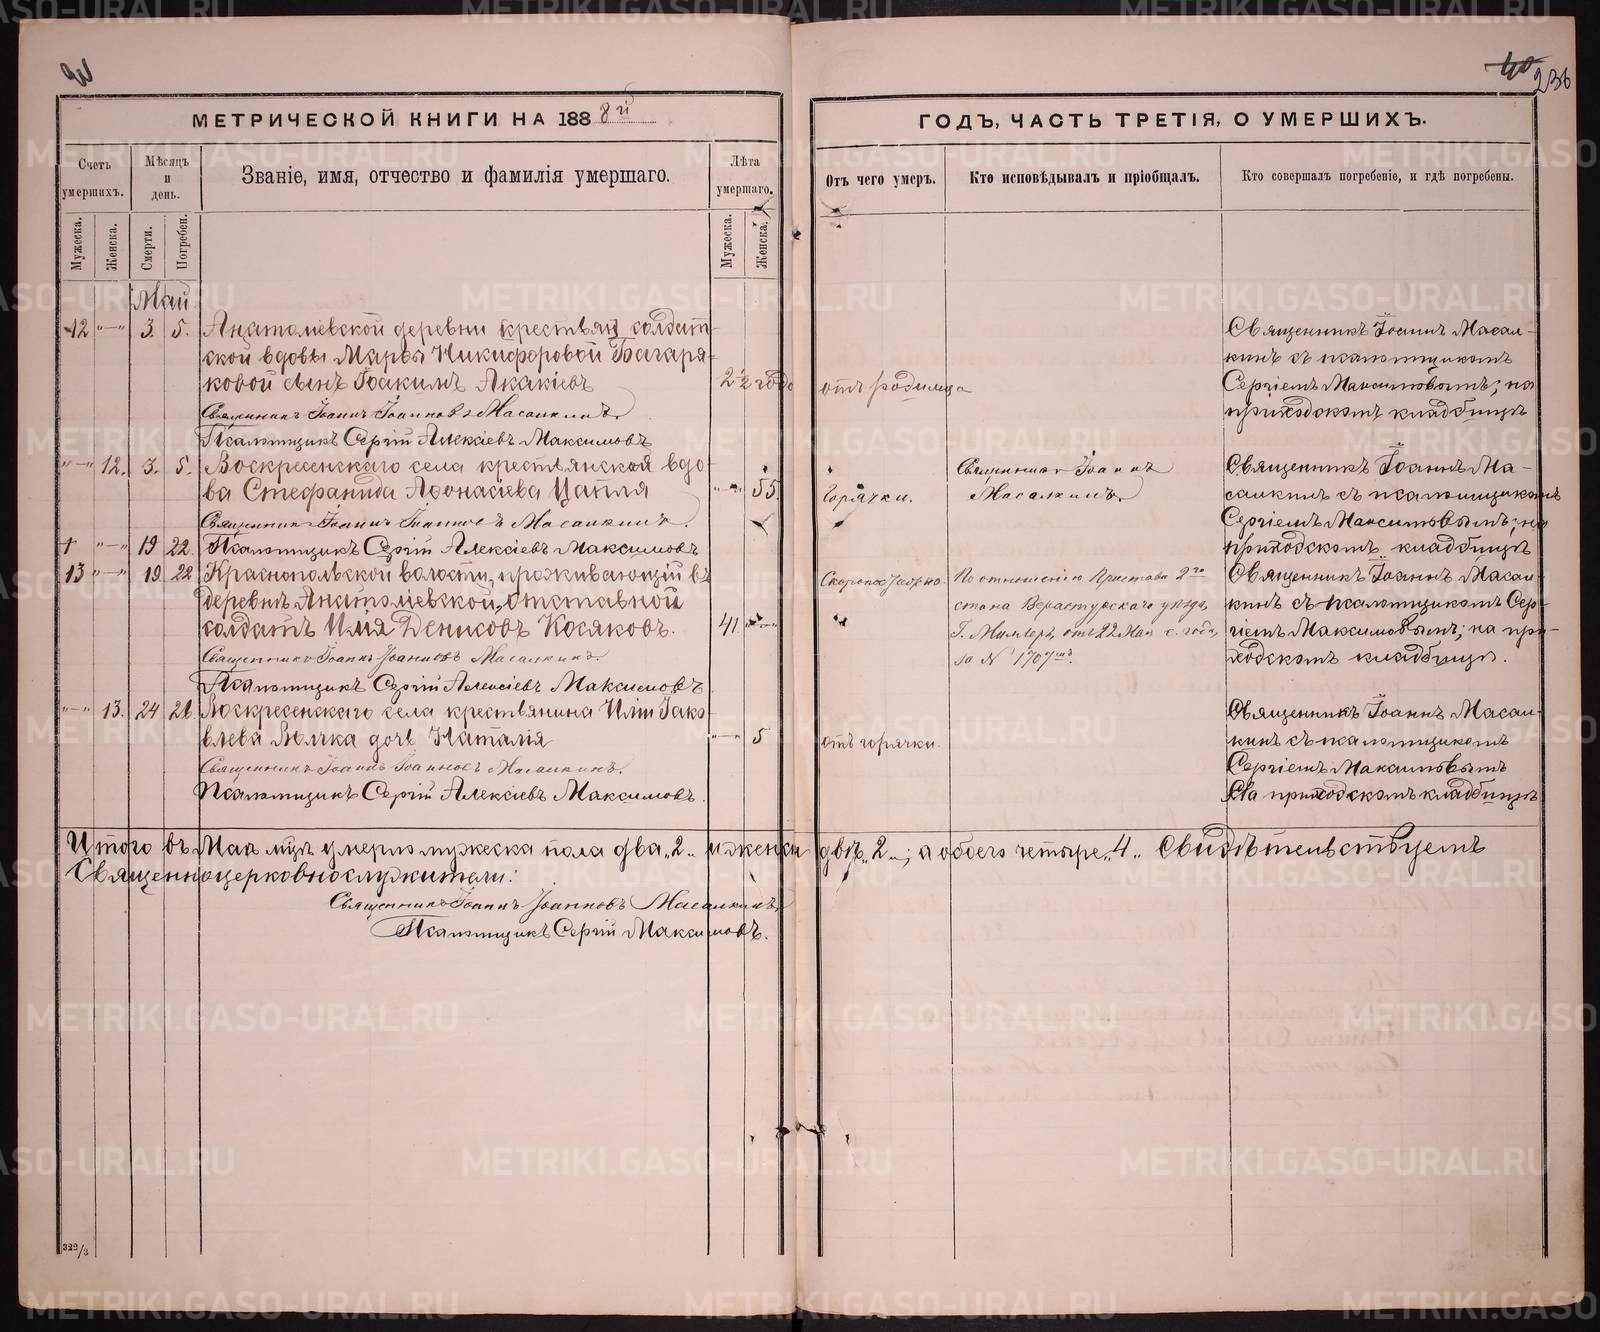 40
236
МЕТРИЧЕСКОЙ КНИГИ НА 1888й
ГОДЪ, ЧАСТЬ ТРЕТІЯ, О УМЕРШИХЪ.
Счетъ умершихъ.
Мѣсяцъ и день.
Званіе, имя, отчество и фамилія умершаго.
Лѣта умершаго.
Отъ чего умеръ.
Кто исповѣдывалъ и пріобщалъ.
Кто совершалъ погребеніе, и гдѣ погребены.
Мужеска.
Женска.
Смерти.
Погребен.
Мужеска.
Женска.
Май
12 "—" 3. 5. Анатоліевской деревни крестьян солдат-
ской вдовы Марьи Никифоровой Багаря-
ковой сынъ Іоакимъ Акакіевъ
2½ года
отъ родимца
Священникъ Іоаннъ Масал-
кинъ съ псаломщикомъ
Сергіемъ Максимовымъ; на
приходскомъ кладбищѣ
Священникъ Іоаннъ Іоанновъ Масалкинъ.
Псаломщикъ Сергій Алексіевъ Максимовъ
"—" 12. 3. 5. Воскресенскаго села крестьянской вдо-
ва Стефанида Аѳонасіева Цапля
"—" 55.
Горячки.
Священникъ Іоаннъ
Масалкинъ.
Священникъ Іоаннъ Ма-
салкинъ съ псаломщикомъ
Сергіемъ Максимовымъ; на
приходскомъ кладбищѣ
Священникъ Іоаннъ Іоанновъ Масалкинъ.
"—" 19 22. Псаломщикъ Сергій Алексіевъ Максимовъ
13 "—" 19 22 Краснопольской волости, проживающій въ
деревнѣ Анатоліевской, отставной
солдатъ Илія Денисовъ Косяковъ.
41 "—"
Скоропостижно.
По отношенію Пристава 2го
стана Верхотурскаго уѣзда,
Г. Миллеръ, отъ 22 Мая с. года,
за № 1707мъ.
Священникъ Іоаннъ Масал-
кинъ съ псаломщикомъ Сер-
гіемъ Максимовымъ; на при-
ходскомъ кладбищѣ.
Священникъ Іоаннъ Іоанновъ Масалкинъ.
Псаломщикъ Сергій Алексіевъ Максимовъ
"—" 13. 24 26 Воскресенскаго села крестьянина Иліи Іако-
влева дочь Наталія
"—" 5
отъ горячки.
Священникъ Іоаннъ Масал-
кинъ съ псаломщикомъ
Сергіемъ Максимовымъ
На приходскомъ кладбищѣ
Священникъ Іоаннъ Іоанновъ Масалкинъ.
Псаломщикъ Сергій Алексіевъ Максимовъ.
Итого въ Маѣ мцѣ умерло мужеска пола два „2„ и женска двѣ „2„; а обоего четыре „4„ Свидѣтельствуемъ
Священноцерковнослужители:
Священникъ Іоаннъ Іоанновъ Масалкинъ.
Псаломщикъ Сергій Максимовъ.
322/3
METRIKI.GASO-URAL.RU